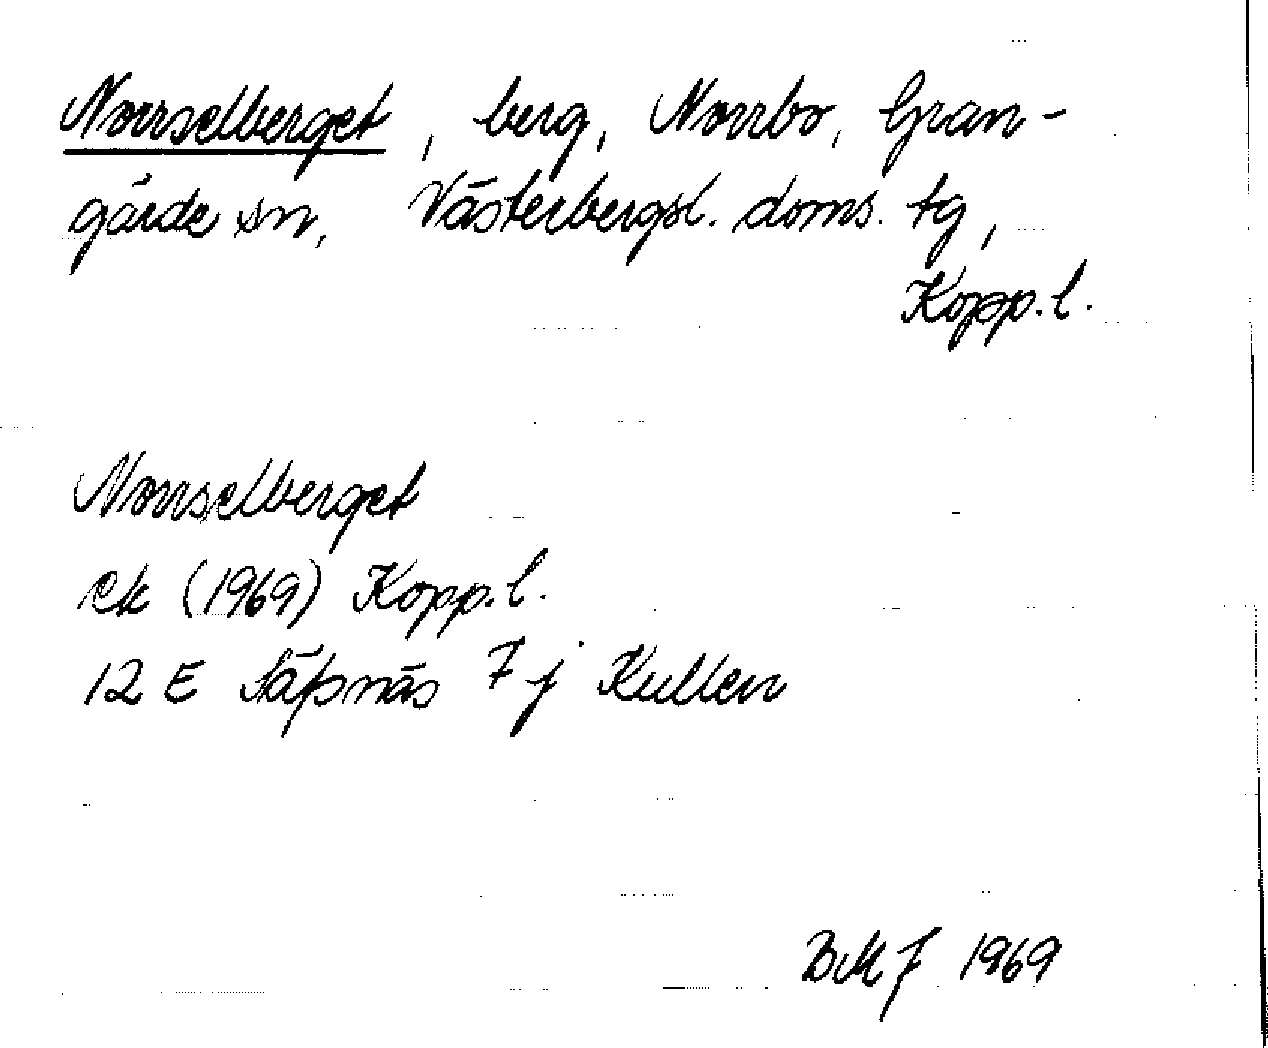 Norrselberget, berg, Norrbo, Gran-
gärde sn, Västerbergsl. doms. tg,
Kopp. l.
Norrselberget
ek (1969) Kopp. l.
12 E Säfsnäs 7 j Kullen
BMJ 1969